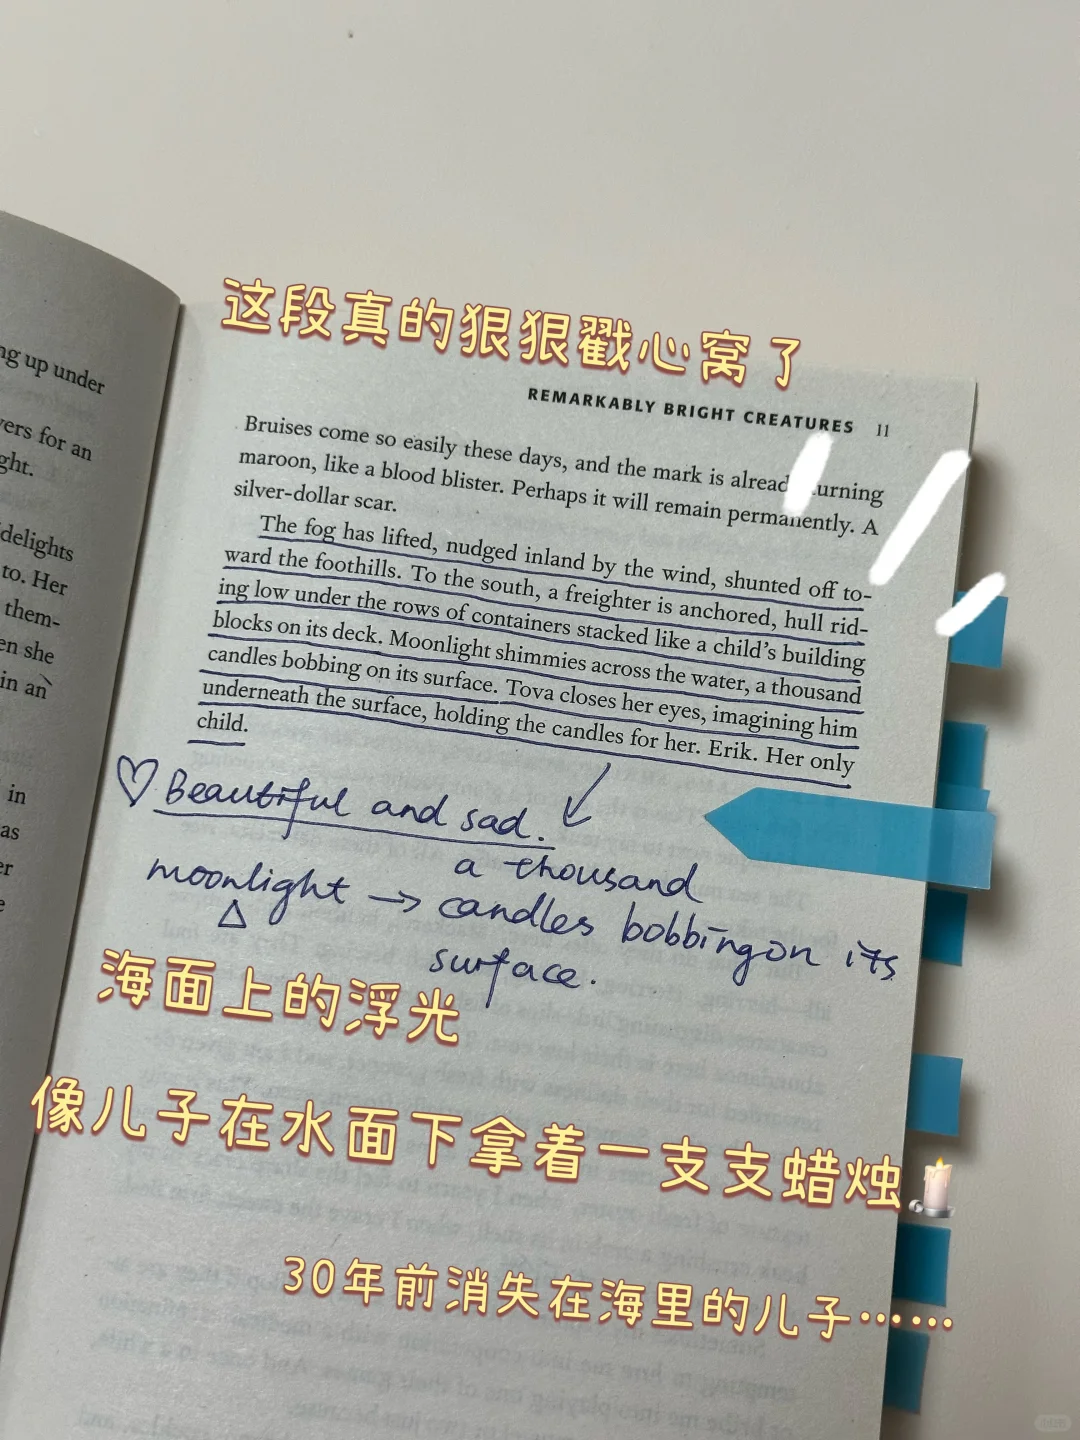 这段真的狠狠戳心窝了
REMARKABLY BRIGHT CREATURES 11
ng up under
vers for an
ght.
delights
to. Her
them-
en she
in an
in
as
er
Bruises come so easily these days, and the mark is already turning
maroon, like a blood blister. Perhaps it will remain permanently. A
silver-dollar scar.
The fog has lifted, nudged inland by the wind, shunted off to-
ward the foothills. To the south, a freighter is anchored, hull rid-
ing low under the rows of containers stacked like a child's building
blocks on its deck. Moonlight shimmies across the water, a thousand
candles bobbing on its surface. Tova closes her eyes, imagining him
underneath the surface, holding the candles for her. Erik. Her only
child.
♡ Beautiful and sad.
moonlight → a thousand
candles bobbing on its
surface.
海面上的浮光
像儿子在水面下拿着一支支蜡烛🕯️
30年前消失在海里的儿子……